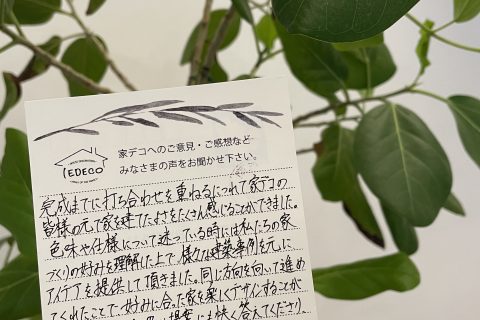 IEDECO
家デコへのご意見・ご感想など
みなさまの声をお聞かせ下さい。
完成までに打ち合わせを重ねるにつれて家デコの
皆様の元で家を建てたさをたくさん感じることができました。
色味や仕様について迷っている時には私たちの家
づくりの好みを理解した上で様々な建築事例を元に
アイデアを提供して頂きました。同じ方向を向いて進め
てくれたことで好みに合った家を楽しくデザインすることが
提案にも快く答えてくださり、